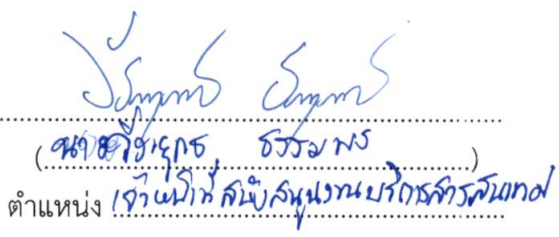 (นายวีระยุทธ ธรรมพร)
ตำแหน่ง เจ้าหน้าที่สนับสนุนงานบริการสารสนเทศ